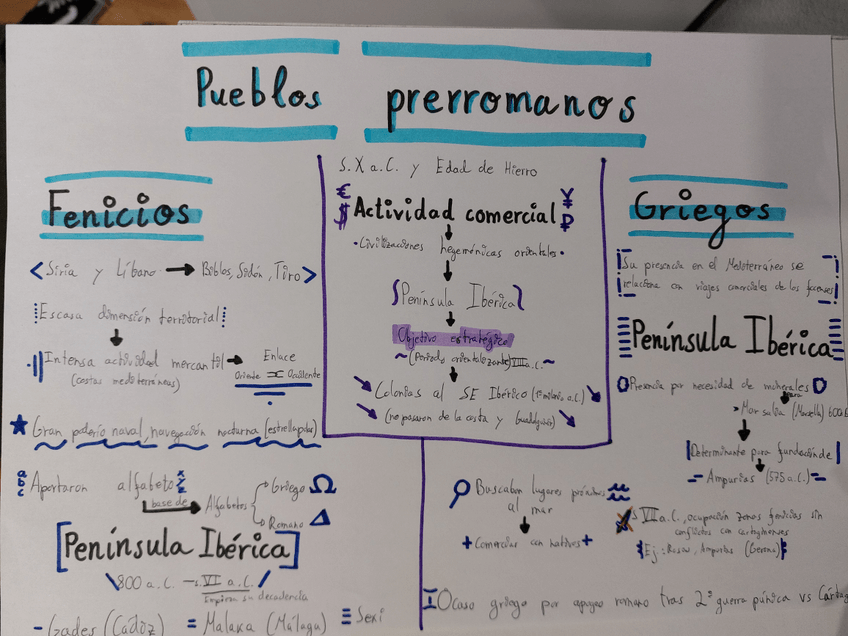 Pueblos prerromanos
s. X a.C. y Edad de Hierro
€ ¥
$ Actividad comercial ₽
• Civilizaciones hegemónicas orientales •
Península Ibérica
Objetivo estratégico
~ (Periodo orientalizante) VIII a.C. ~
Colonias al SE Ibérico (1º milenio a.C.)
(no pasaron de la costa y Guadalquivir)
Fenicios
< Siria y Líbano → Biblos, Sidón, Tiro >
Escasa dimensión territorial
Intensa actividad mercantil → Enlace
(costas mediterráneas) Oriente Occidente
Gran poderío naval, navegación nocturna (estrella polar)
abc Aportaron alfabeto xyz
base de → Alfabetos
Griego Ω
Romano Δ
[Península Ibérica]
\ 800 a.C. — s. VI a.C. /
Empieza su decadencia
- Gades (Cádiz) = Malaka (Málaga) ≡ Sexi
Griegos
Su presencia en el Mediterráneo se
relaciona con viajes comerciales de los focenses
Península Ibérica
Presencia por necesidad de minerales
para
> Marsalia (Marsella) 600
Determinante para fundación de
Ampurias (575 a.C.)
Buscaban lugares próximos
al mar
+ Comerciar con nativos +
s. VII a.C., ocupación zonas fenicias sin
conflictos con cartagineses
Ej: Rosas, Ampurias (Gerona)
Ocaso griego por apogeo romano tras 2ª guerra púnica vs